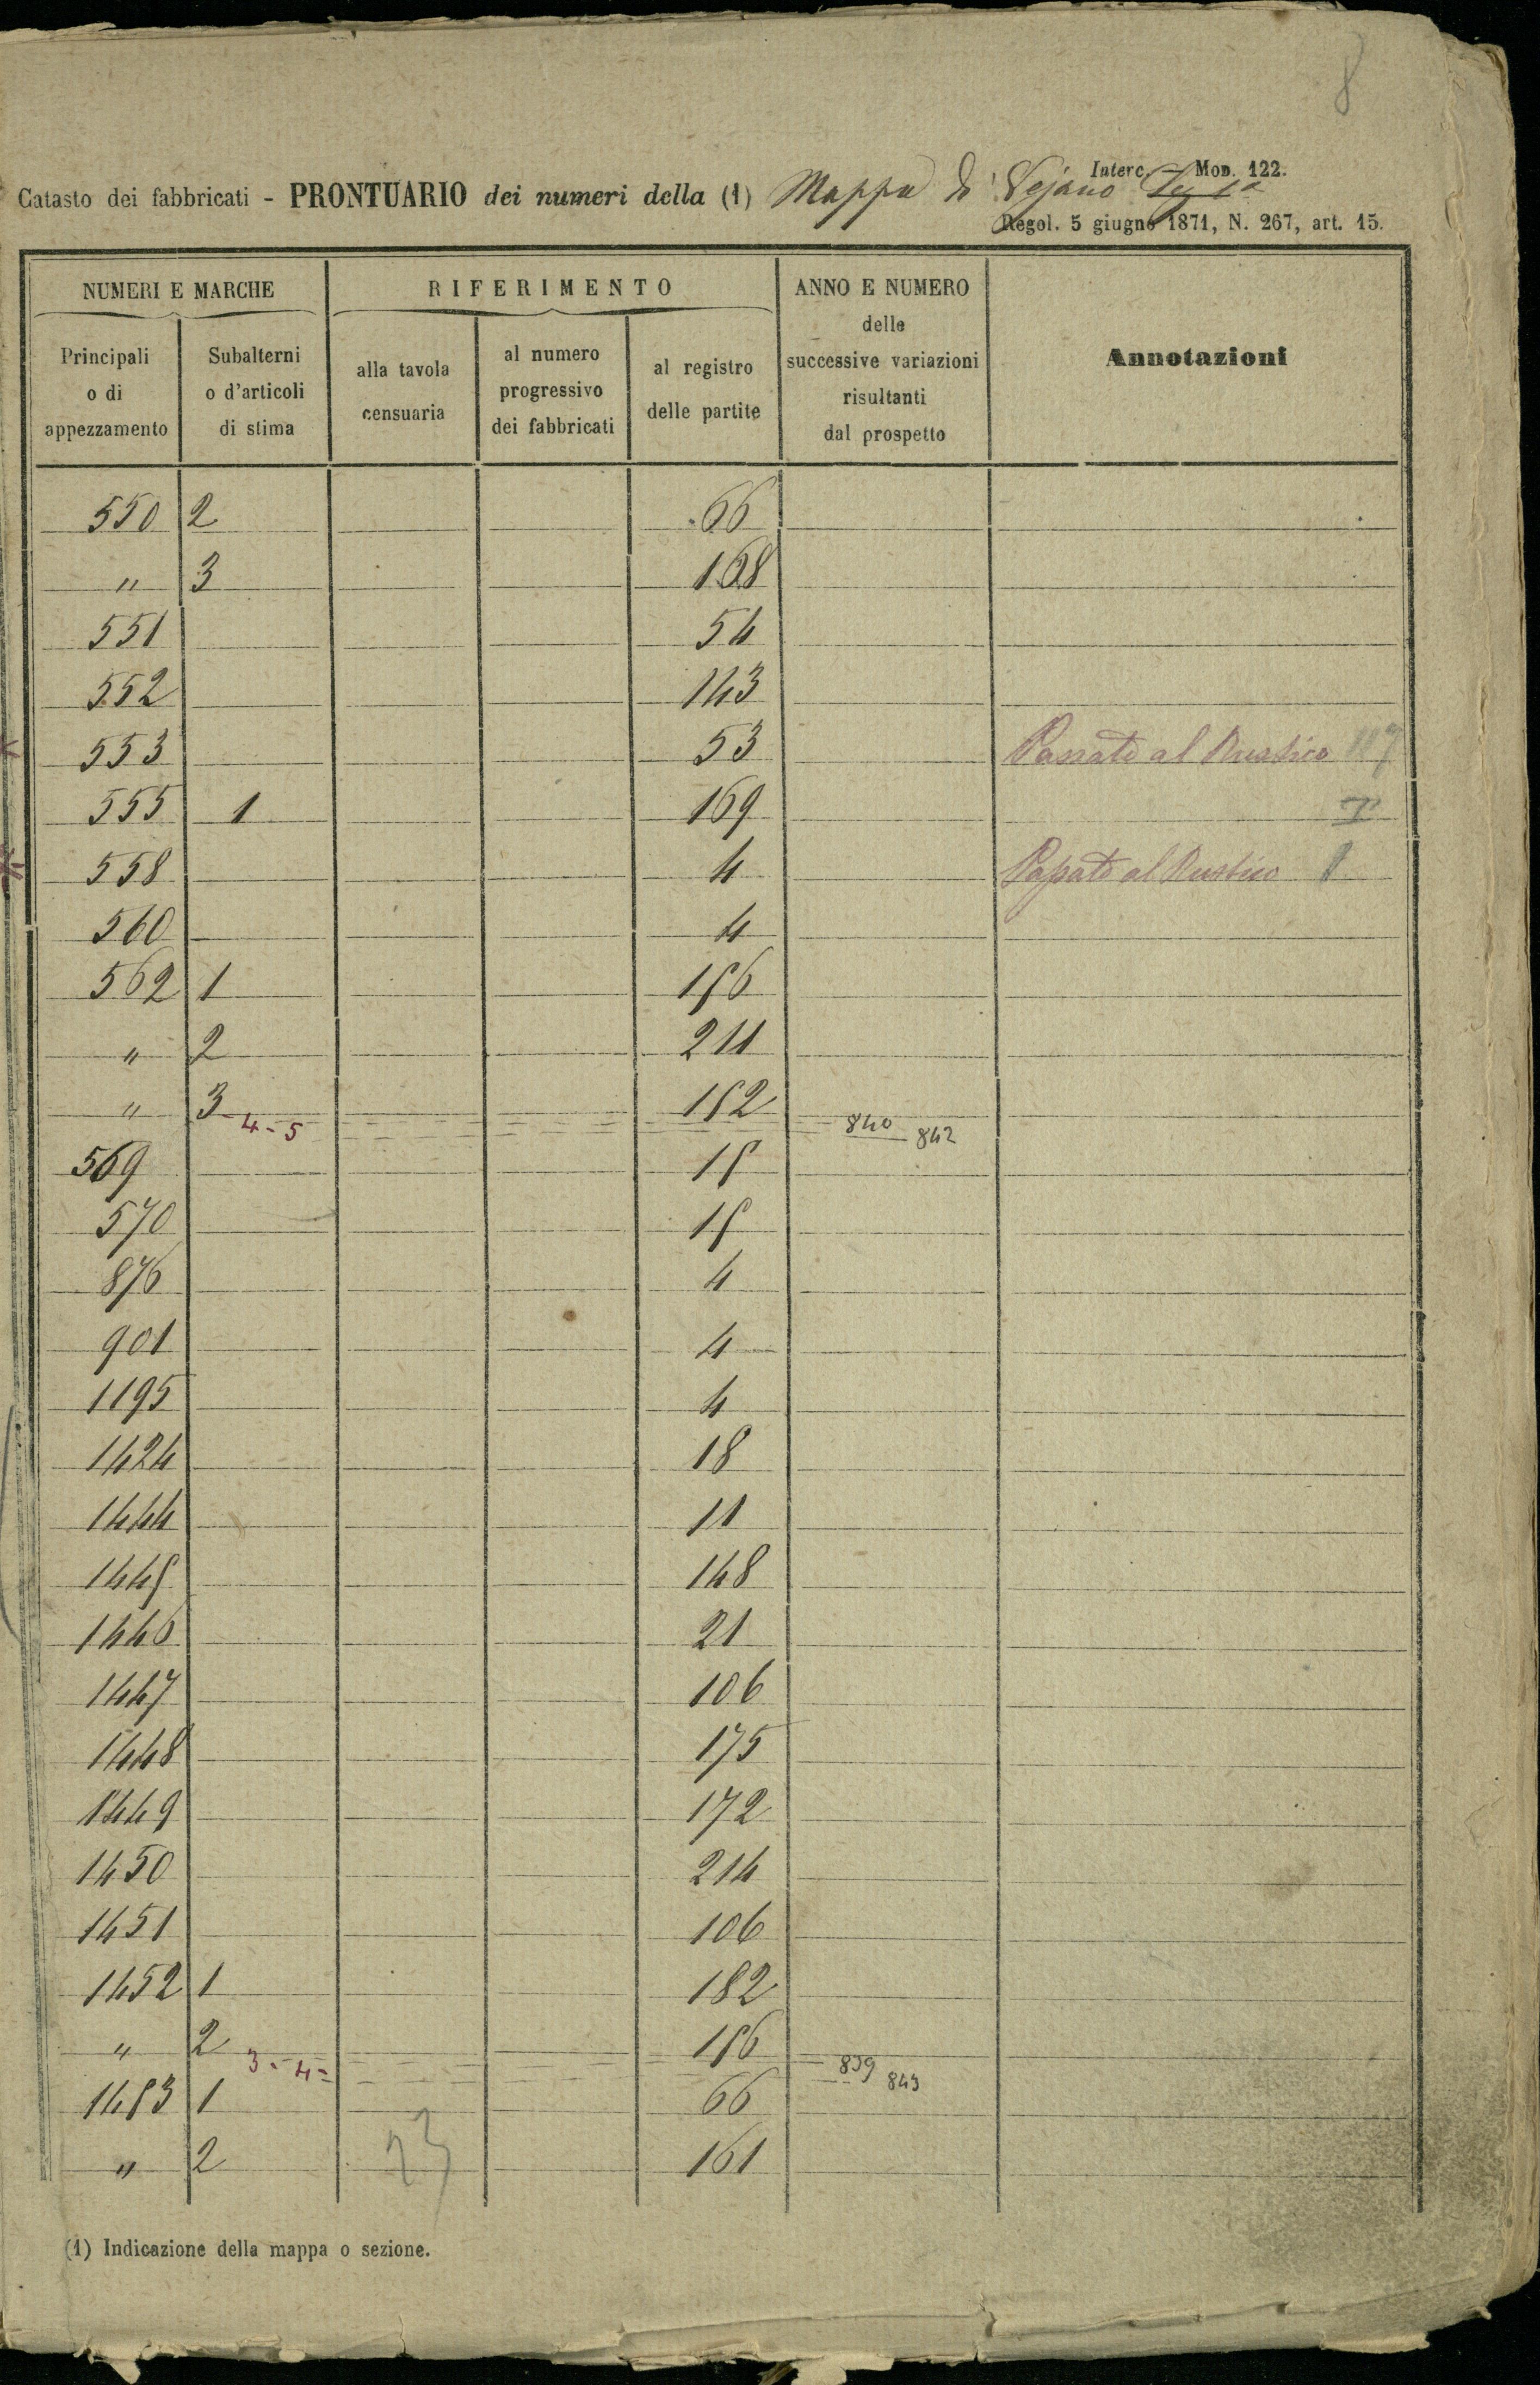 8
Interc. Mod. 122.
Catasto dei fabbricati - PRONTUARIO dei numeri della (1) Mappa di Vejano
Regol. 5 giugno 1871, N. 267, art. 15.
NUMERI E MARCHE
RIFERIMENTO
ANNO E NUMERO
delle
successive variazioni
risultanti
dal prospetto
Annotazioni
Principali
o di
appezzamento
Subalterni
o d'articoli
di stima
alla tavola
censuaria
al numero
progressivo
dei fabbricati
al registro
delle partite
550 2 66
" 3 168
551 54
552 143
553 53 Passato al Rustico 117
555 1 169
558 4 Passato al Rustico
560 4
562 1 156
" 2 211
" 3 152
4-5 840 842
569 15
570 15
876 4
901 4
1195 4
1424 18
1444 11
1445 148
1446 21
1447 106
1448 175
1449 172
1450 214
1451 106
1452 1 182
" 2 156
3-4- 839 843
1453 1 66
" 2 161
23
(1) Indicazione della mappa o sezione.